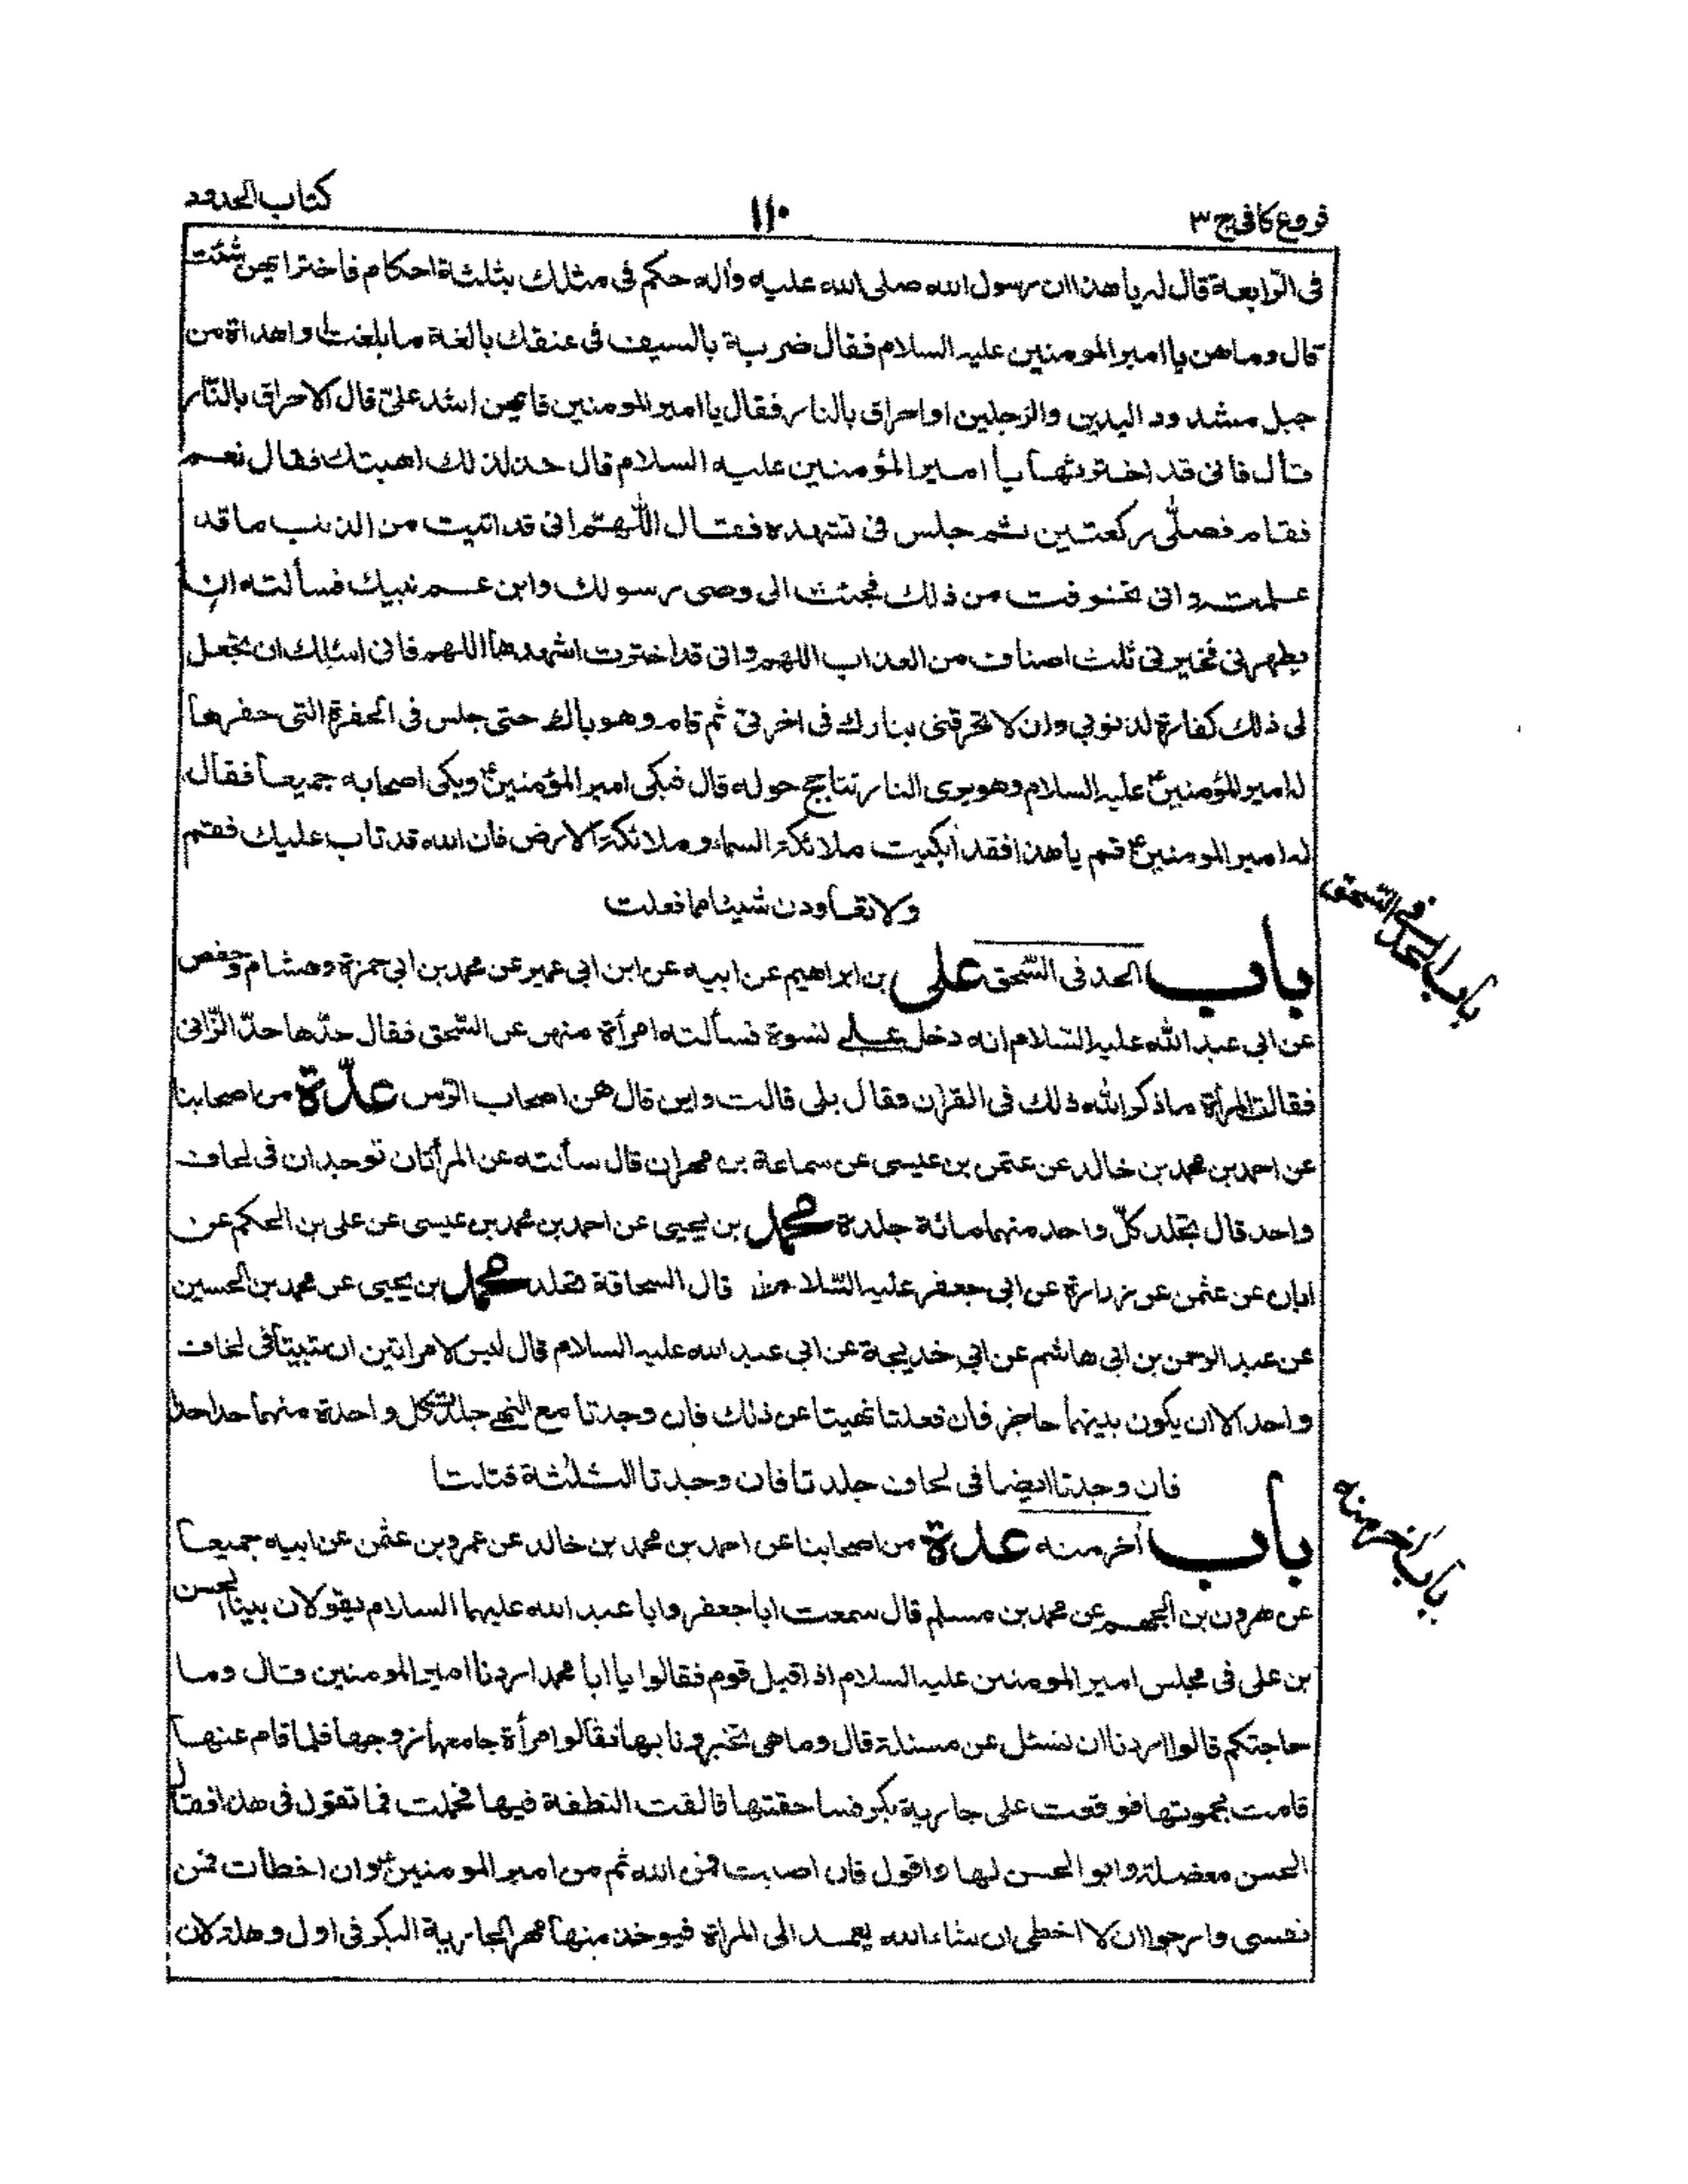 فروع كافى ج ٣
١١٠
كتاب الحدود
فى الرّابعة قال له يا هذا ان رسول الله صلى الله عليه وأله حكم فى مثلك بثلثة احكام فاختر ايهن شئت
قال وما هن يا امير المومنين عليه السلام فقال ضربة بالسيف فى عنقك بالغة ما بلغت او اهداة من
جبل مشدود اليدين والرجلين او احراق بالنار فقال يا امير المومنين فايهن اشد علىّ قال الاحراق بالنّار
قال فانى قد اخترتها يا امير المؤمنين عليه السلام قال خذ لذلك اهبتك فقال نعم
فقام فصلّى ركعتين ثم جلس فى تشهده فقال اللّهمّ انى قد اتيت من الذنب ما قد
علمته وانى تخوفت من ذلك فجئت الى وصى رسولك وابن عم نبيك فسألته ان
يطهرنى فخيرنى ثلث اصناف من العذاب اللهم وانى قد اخترت اشدها اللهم فانى اسئلك ان تجعل
لى ذلك كفارة لذنوبى وان لا تحرقنى بنارك فى اخرتى ثم قام وهو باك حتى جلس فى الحفرة التى حفرها
له امير المؤمنينؑ عليه السلام وهو يرى النار تتاجج حوله قال فبكى امير المؤمنينؑ وبكى اصحابه جميعا فقال
له امير المومنينؑ قم يا هذا فقد ابكيت ملائكة السماء و ملائكة الارض فان الله قد تاب عليك فقم
ولا تعاودن شيئا مما فعلت
باب الحد فى السّحق على بن ابراهيم عن ابيه عن ابن ابى عمير عن محمد بن ابى حمزة وهشام وحفص
عن ابى عبد الله عليه السّلام انه دخل عليه نسوة فسألته امرأة منهن عن السّحق فقال حدّها حدّ الزّانى
فقالت المرأة ما ذكر الله ذلك فى القران فقال بلى قالت واين قال هن اصحاب الرّس عدّة من اصحابنا
عن احمد بن محمد بن خالد عن عثمن بن عيسى عن سماعة بن مهران قال سألته عن المرأتان توجدان فى لحاف
واحد قال تجلد كلّ واحد منهما مائة جلدة محمد بن يحيى عن احمد بن محمد بن عيسى عن على بن الحكم عن
ابان عن عثمن عن زرارة عن ابى جعفر عليه السّلام قال السحاقة تجلد محمد بن يحيى عن محمد بن الحسين
عن عبد الرحمن بن ابى هاشم عن ابى خديجة عن ابى عبد الله عليه السلام قال ليس لامراتين ان تبيتا فى لحاف
واحد الا ان يكون بينهما حاجز فان فعلتا نهيتا عن ذلك فان وجدتا مع النهى جلدت كل واحدة منهما حدا حدا
فان وجدتا ايضا فى لحاف جلدتا فان وجدتا الثلثة قتلتا
باب أخر منه عدة من اصحابنا عن احمد بن محمد بن خالد عن عمرو بن عثمن عن ابيه جميعا
عن هرون بن الجهم عن محمد بن مسلم قال سمعت ابا جعفر وابا عبد الله عليهما السلام يقولان بينا الحسن
بن على فى مجلس امير المومنين عليه السلام اذ اقبل قوم فقالوا يا ابا محمد اردنا امير المومنين قال وما
حاجتكم قالوا اردنا ان نسئل عن مسئلة قال وما هى تخبرونا بها فقالوا امرأة جامعها زوجها فلما قام عنها
قامت بحموتها فوقعت على جارية بكر فساحقتها فالقت النطفة فيها فحملت فما تقول فى هذا فقال
الحسن معضلة وابو الحسن لها واقول فان اصبت فمن الله ثم من امير المومنينؑ وان اخطات فمن
نفسى وارجو ان لا اخطى ان شاء الله يعمد الى المراة فيوخذ منها مهر الجارية البكر فى اول وهلة لان
باب الحد فى السحق
باب أخر منه